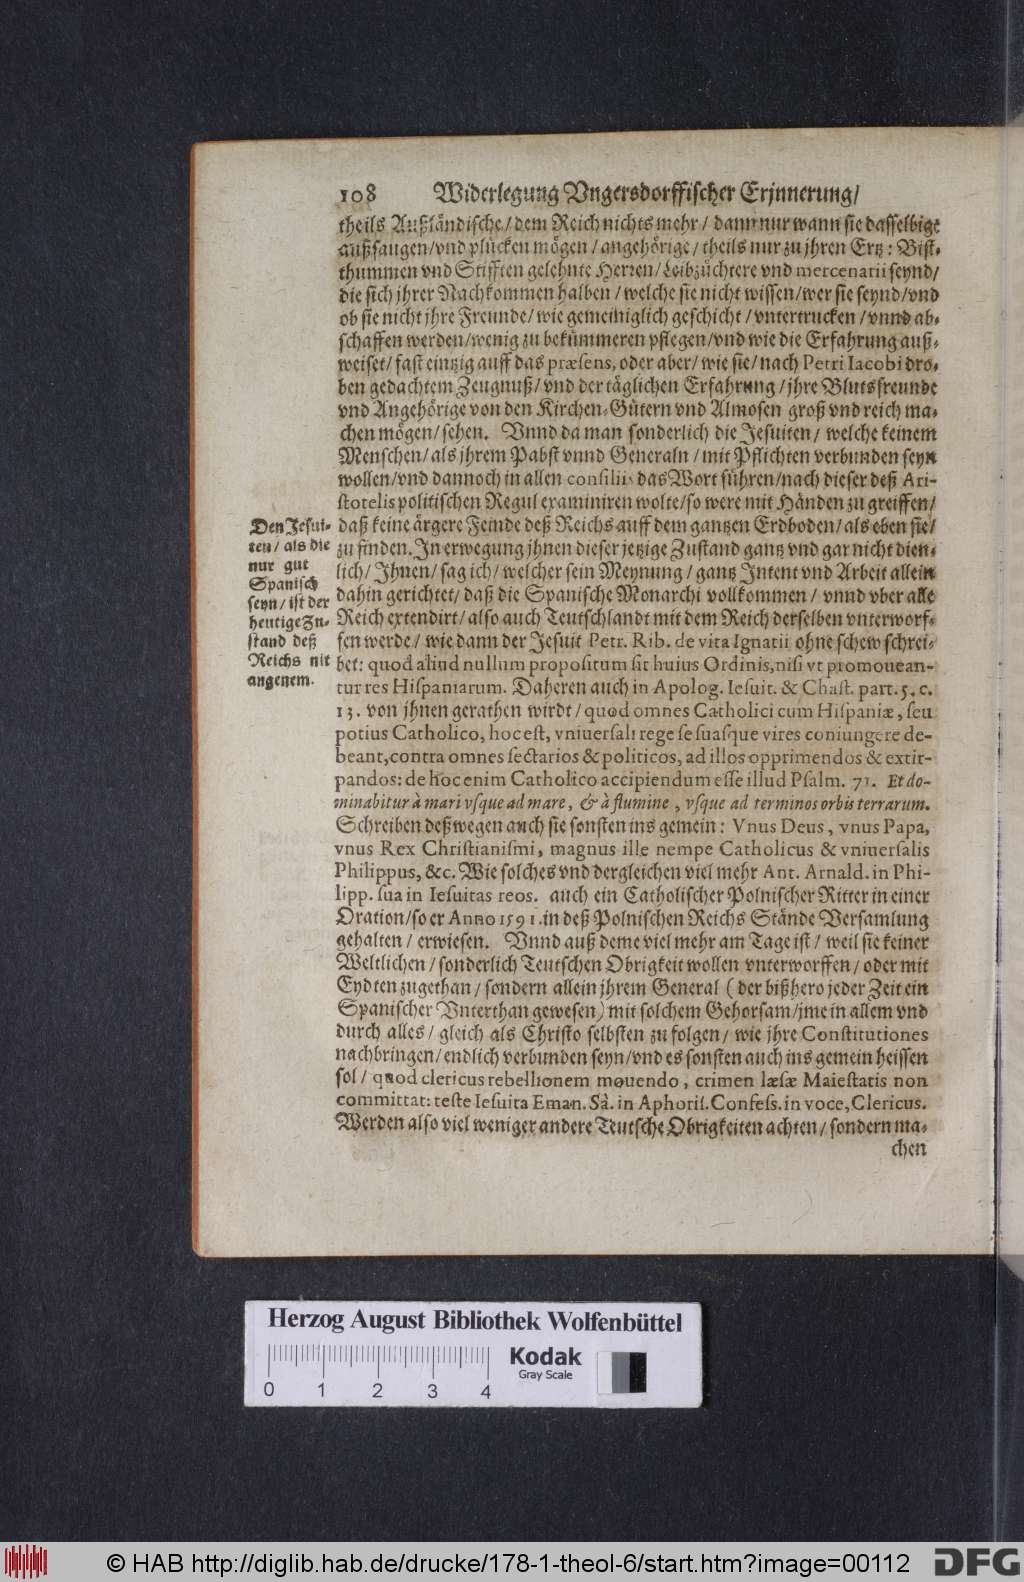 108 Widerlegung Vngersdorffischer Erjnnerung/
theils Außländische/ dem Reich nichts mehr/ dann nur wann sie dasselbige
außsaugen/vnd plücken mögen/angehörige/ theils nur zu jhren Ertz: Bist-
thummen vnd Stifften gelehnte Herren/Leibzüchtere vnd mercenarii seynd/
die sich jhrer Nachkommen halben/welche sie nicht wissen/wer sie seynd/vnd
ob sie nicht jhre Freunde/wie gemeiniglich geschicht/vntertrucken/vnnd ab-
schaffen werden/wenig zu bekümmeren pflegen/vnd wie die Erfahrung auß-
weiset/fast eintzig auff das præsens, oder aber/wie sie/nach Petri Iacobi dro-
ben gedachtem Zeugnuß/vnd der täglichen Erfahrung/jhre Blutsfreunde
vnd Angehörige von den Kirchen-Gütern vnd Almosen groß vnd reich ma-
chen mögen/sehen. Vnnd da man sonderlich die Jesuiten/ welche keinem
Menschen/als jhrem Pabst vnnd Generaln/mit Pflichten verbunden seyn
wollen/vnd dannoch in allen consiliis das Wort führen/nach dieser deß Ari-
stotelis politischen Regul examiniren wolte/so were mit Händen zu greiffen/
daß keine ärgere Feinde deß Reichs auff dem gantzen Erdboden/als eben sie/
zu finden. In erwegung jhnen dieser jetzige Zustand gantz vnd gar nicht dien-
lich/Ihnen/sag ich/welcher sein Meynung/gantz Intent vnd Arbeit allein
dahin gerichtet/daß die Spanische Monarchi vollkommen/vnnd vber alle
Reich extendirt/also auch Teutschlandt mit dem Reich derselben vnterworf-
fen werde/wie dann der Jesuit Petr. Rib. de vita Ignatii ohne schew schrei-
bet: quod aliud nullum propositum sit huius Ordinis, nisi vt promouean-
tur res Hispaniarum. Daheren auch in Apolog. Iesuit. & Chast. part. 5. c.
13. von jhnen gerathen wirdt/quod omnes Catholici cum Hispaniæ, seu
potius Catholico, hoc est, vniuersali rege se suasque vires coniungere de-
beant, contra omnes sectarios & politicos, ad illos opprimendos & extir-
pandos: de hoc enim Catholico accipiendum esse illud Psalm. 71. Et do-
minabitur à mari vsque ad mare, & à flumine, vsque ad terminos orbis terrarum.
Schreiben deßwegen auch sie sonsten ins gemein: Vnus Deus, vnus Papa,
vnus Rex Christianismi, magnus ille nempe Catholicus & vniuersalis
Philippus, &c. Wie solches vnd dergleichen viel mehr Ant. Arnald. in Phi-
lipp. sua in Iesuitas reos. auch ein Catholischer Polnischer Ritter in einer
Oration/so er Anno 1591. in deß Polnischen Reichs Stände Versamlung
gehalten/erwiesen. Vnnd auß deme viel mehr am Tage ist/weil sie keiner
Weltlichen/sonderlich Teutschen Obrigkeit wollen vnterworffen/oder mit
Eydten zugethan/sondern allein jhrem General (der bißhero jeder Zeit ein
Spanischer Vnterthan gewesen) mit solchem Gehorsam/jme in allem vnd
durch alles/gleich als Christo selbsten zu folgen/wie jhre Constitutiones
nachbringen/endlich verbunden seyn/vnd es sonsten auch ins gemein heissen
sol/quod clericus rebellionem mouendo, crimen læsæ Maiestatis non
committat: teste Iesuita Eman. Sà. in Aphoris. Confess. in voce, Clericus.
Werden also viel weniger andere Teutsche Obrigkeiten achten/sondern ma-
chen
Den Jesui-
ten/als die
nur gut
Spanisch
seyn/ist der
heutige Zu-
stand deß
Reichs nit
angenem.
Herzog August Bibliothek Wolfenbüttel
Kodak
Gray Scale
0 1 2 3 4
© HAB http://diglib.hab.de/drucke/178-1-theol-6/start.htm?image=00112
DFG